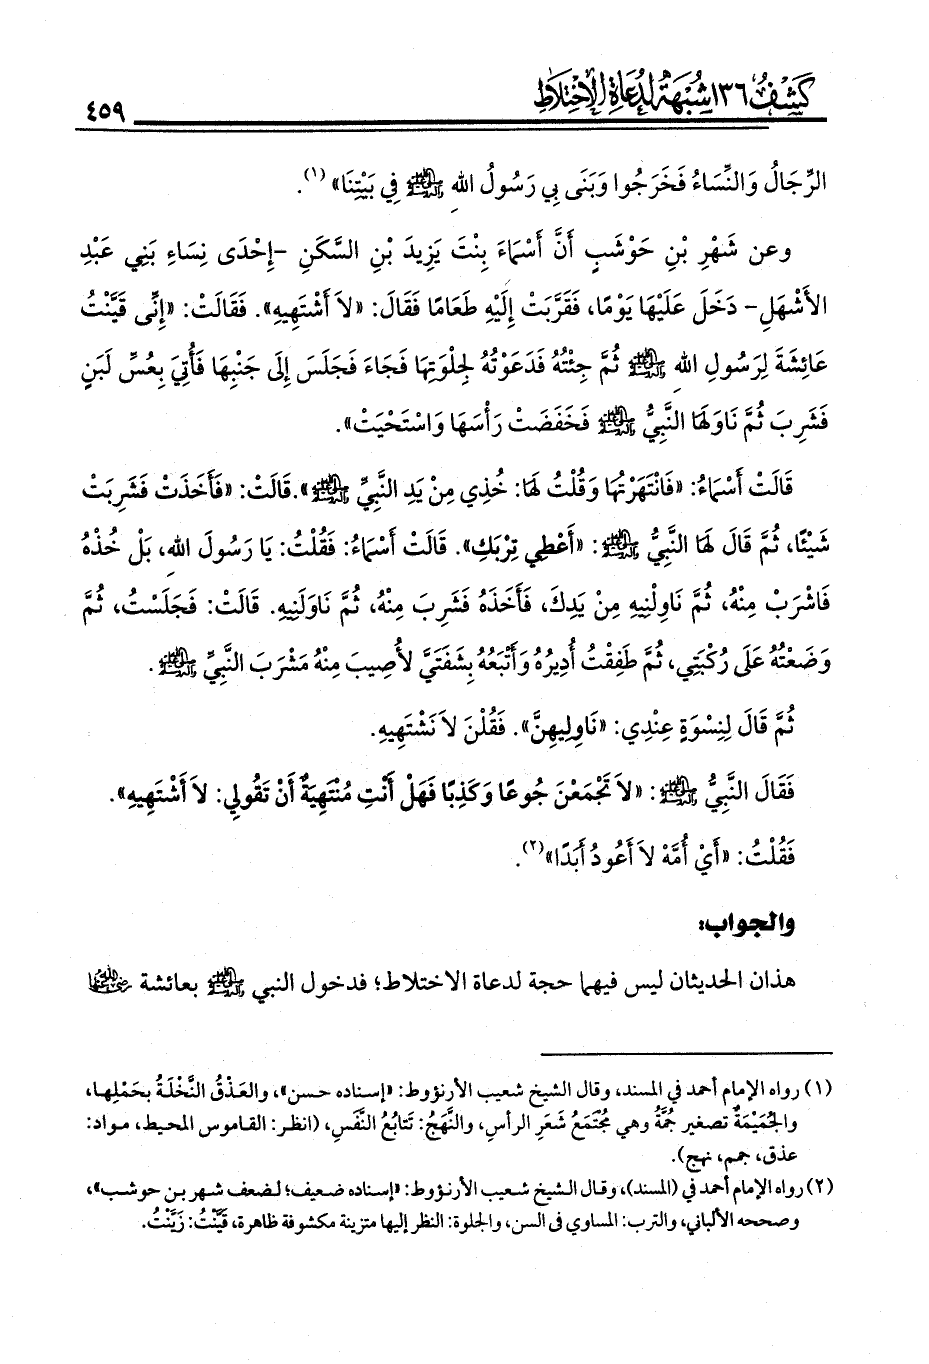 كَشْفُ ١٣٦ شُبْهَةً لِدُعَاةِ الاِخْتِلَاطِ
٤٥٩
الرِّجَالُ وَالنِّسَاءُ فَخَرَجُوا وَبَنَى بِي رَسُولُ اللهِ ﷺ فِي بَيْتِنَا» (١).
وعن شَهْرِ بْنِ حَوْشَبٍ أَنَّ أَسْمَاءَ بِنْتَ يَزِيدَ بْنِ السَّكَنِ -إِحْدَى نِسَاءِ بَنِي عَبْدِ
الأَشْهَلِ- دَخَلَ عَلَيْهَا يَوْمًا، فَقَرَّبَتْ إِلَيْهِ طَعَامًا فَقَالَ: «لاَ أَشْتَهِيهِ». فَقَالَتْ: «إِنِّى قَيَّنْتُ
عَائِشَةَ لِرَسُولِ اللهِ ﷺ ثُمَّ جِئْتُهُ فَدَعَوْتُهُ لِجِلْوَتِهَا فَجَاءَ فَجَلَسَ إِلَى جَنْبِهَا فَأُتِيَ بِعُسِّ لَبَنٍ
فَشَرِبَ ثُمَّ نَاوَلَهَا النَّبِيُّ ﷺ فَخَفَضَتْ رَأْسَهَا وَاسْتَحْيَتْ».
قَالَتْ أَسْمَاءُ: «فَانْتَهَرْتُهَا وَقُلْتُ لَهَا: خُذِي مِنْ يَدِ النَّبِيِّ ﷺ».قَالَتْ: «فَأَخَذَتْ فَشَرِبَتْ
شَيْئًا، ثُمَّ قَالَ لَهَا النَّبِيُّ ﷺ: «أَعْطِي تِرْبَكِ». قَالَتْ أَسْمَاءُ: فَقُلْتُ: يَا رَسُولَ اللهِ، بَلْ خُذْهُ
فَاشْرَبْ مِنْهُ، ثُمَّ نَاوِلْنِيهِ مِنْ يَدِكَ، فَأَخَذَهُ فَشَرِبَ مِنْهُ، ثُمَّ نَاوَلَنِيهِ. قَالَتْ: فَجَلَسْتُ، ثُمَّ
وَضَعْتُهُ عَلَى رُكْبَتِي، ثُمَّ طَفِقْتُ أُدِيرُهُ وَأَتْبَعُهُ بِشَفَتَيَّ لأُصِيبَ مِنْهُ مَشْرَبَ النَّبِيِّ ﷺ.
ثُمَّ قَالَ لِنِسْوَةٍ عِنْدِي: «نَاوِلِيهِنَّ». فَقُلْنَ لاَ نَشْتَهِيهِ.
فَقَالَ النَّبِيُّ ﷺ: «لاَ تَجْمَعْنَ جُوعًا وَكَذِبًا فَهَلْ أَنْتِ مُنْتَهِيَةٌ أَنْ تَقُولِي: لاَ أَشْتَهِيهِ».
فَقُلْتُ: «أَيْ أُمَّهْ لاَ أَعُودُ أَبَدًا» (٢).
والجواب:
هذان الحديثان ليس فيهما حجة لدعاة الاختلاط؛ فدخول النبي ﷺ بعائشة رضي الله عنها
(١) رواه الإمام أحمد في المسند، وقال الشيخ شعيب الأرنؤوط: «إسناده حسن»، والعَذْقُ النَّخْلَةُ بحَمْلِها،
والجُمَيْمَةُ تصغير جُمَّةُ وهي مُجْتَمَعُ شَعَرِ الرأسِ، والنَّهَجُ: تَتَابُعُ النَّفَسِ، (انظر: القاموس المحيط، مواد:
عذق، جمم، نهج).
(٢) رواه الإمام أحمد في (المسند)، وقال الشيخ شعيب الأرنؤوط: «إسناده ضعيف؛ لضعف شهر بن حوشب»،
وصححه الألباني، والترب: المساوي فى السن، والجلوة: النظر إليها متزينة مكشوفة ظاهرة، قَيَّنْتُ: زَيَّنْتُ.